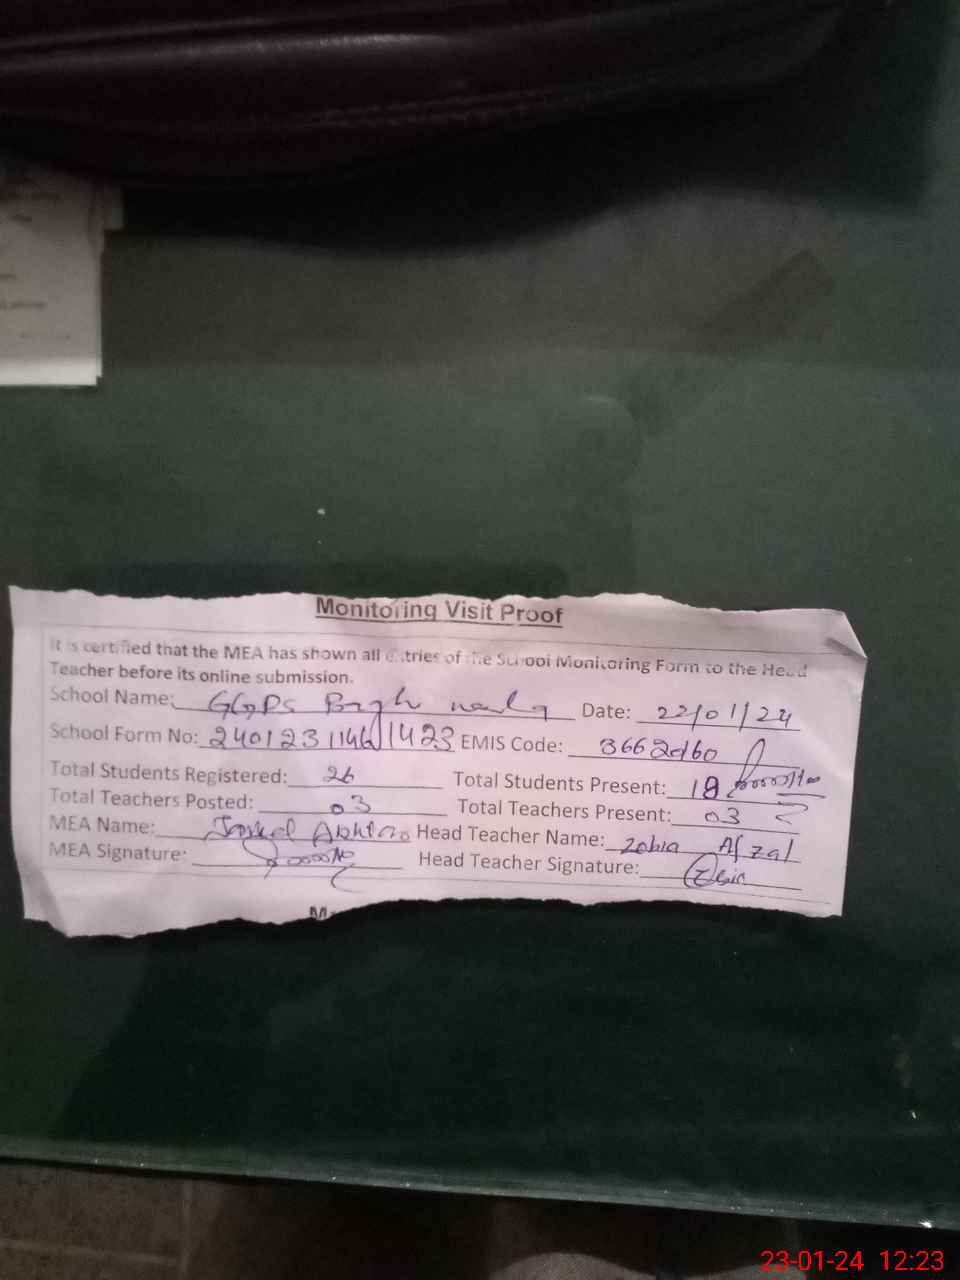 Monitoring Visit Proof
It is certified that the MEA has shown all entries of the School Monitoring Form to the Head
Teacher before its online submission.
School Name: GGPS Bagh Date: 22/01/24
School Form No: EMIS Code:
Total Students Registered: 26 Total Students Present: 18
Total Teachers Posted: 03 Total Teachers Present: 03
MEA Name: Head Teacher Name: Zobia Afzal
MEA Signature: Head Teacher Signature: Zobia
23-01-24 12:23